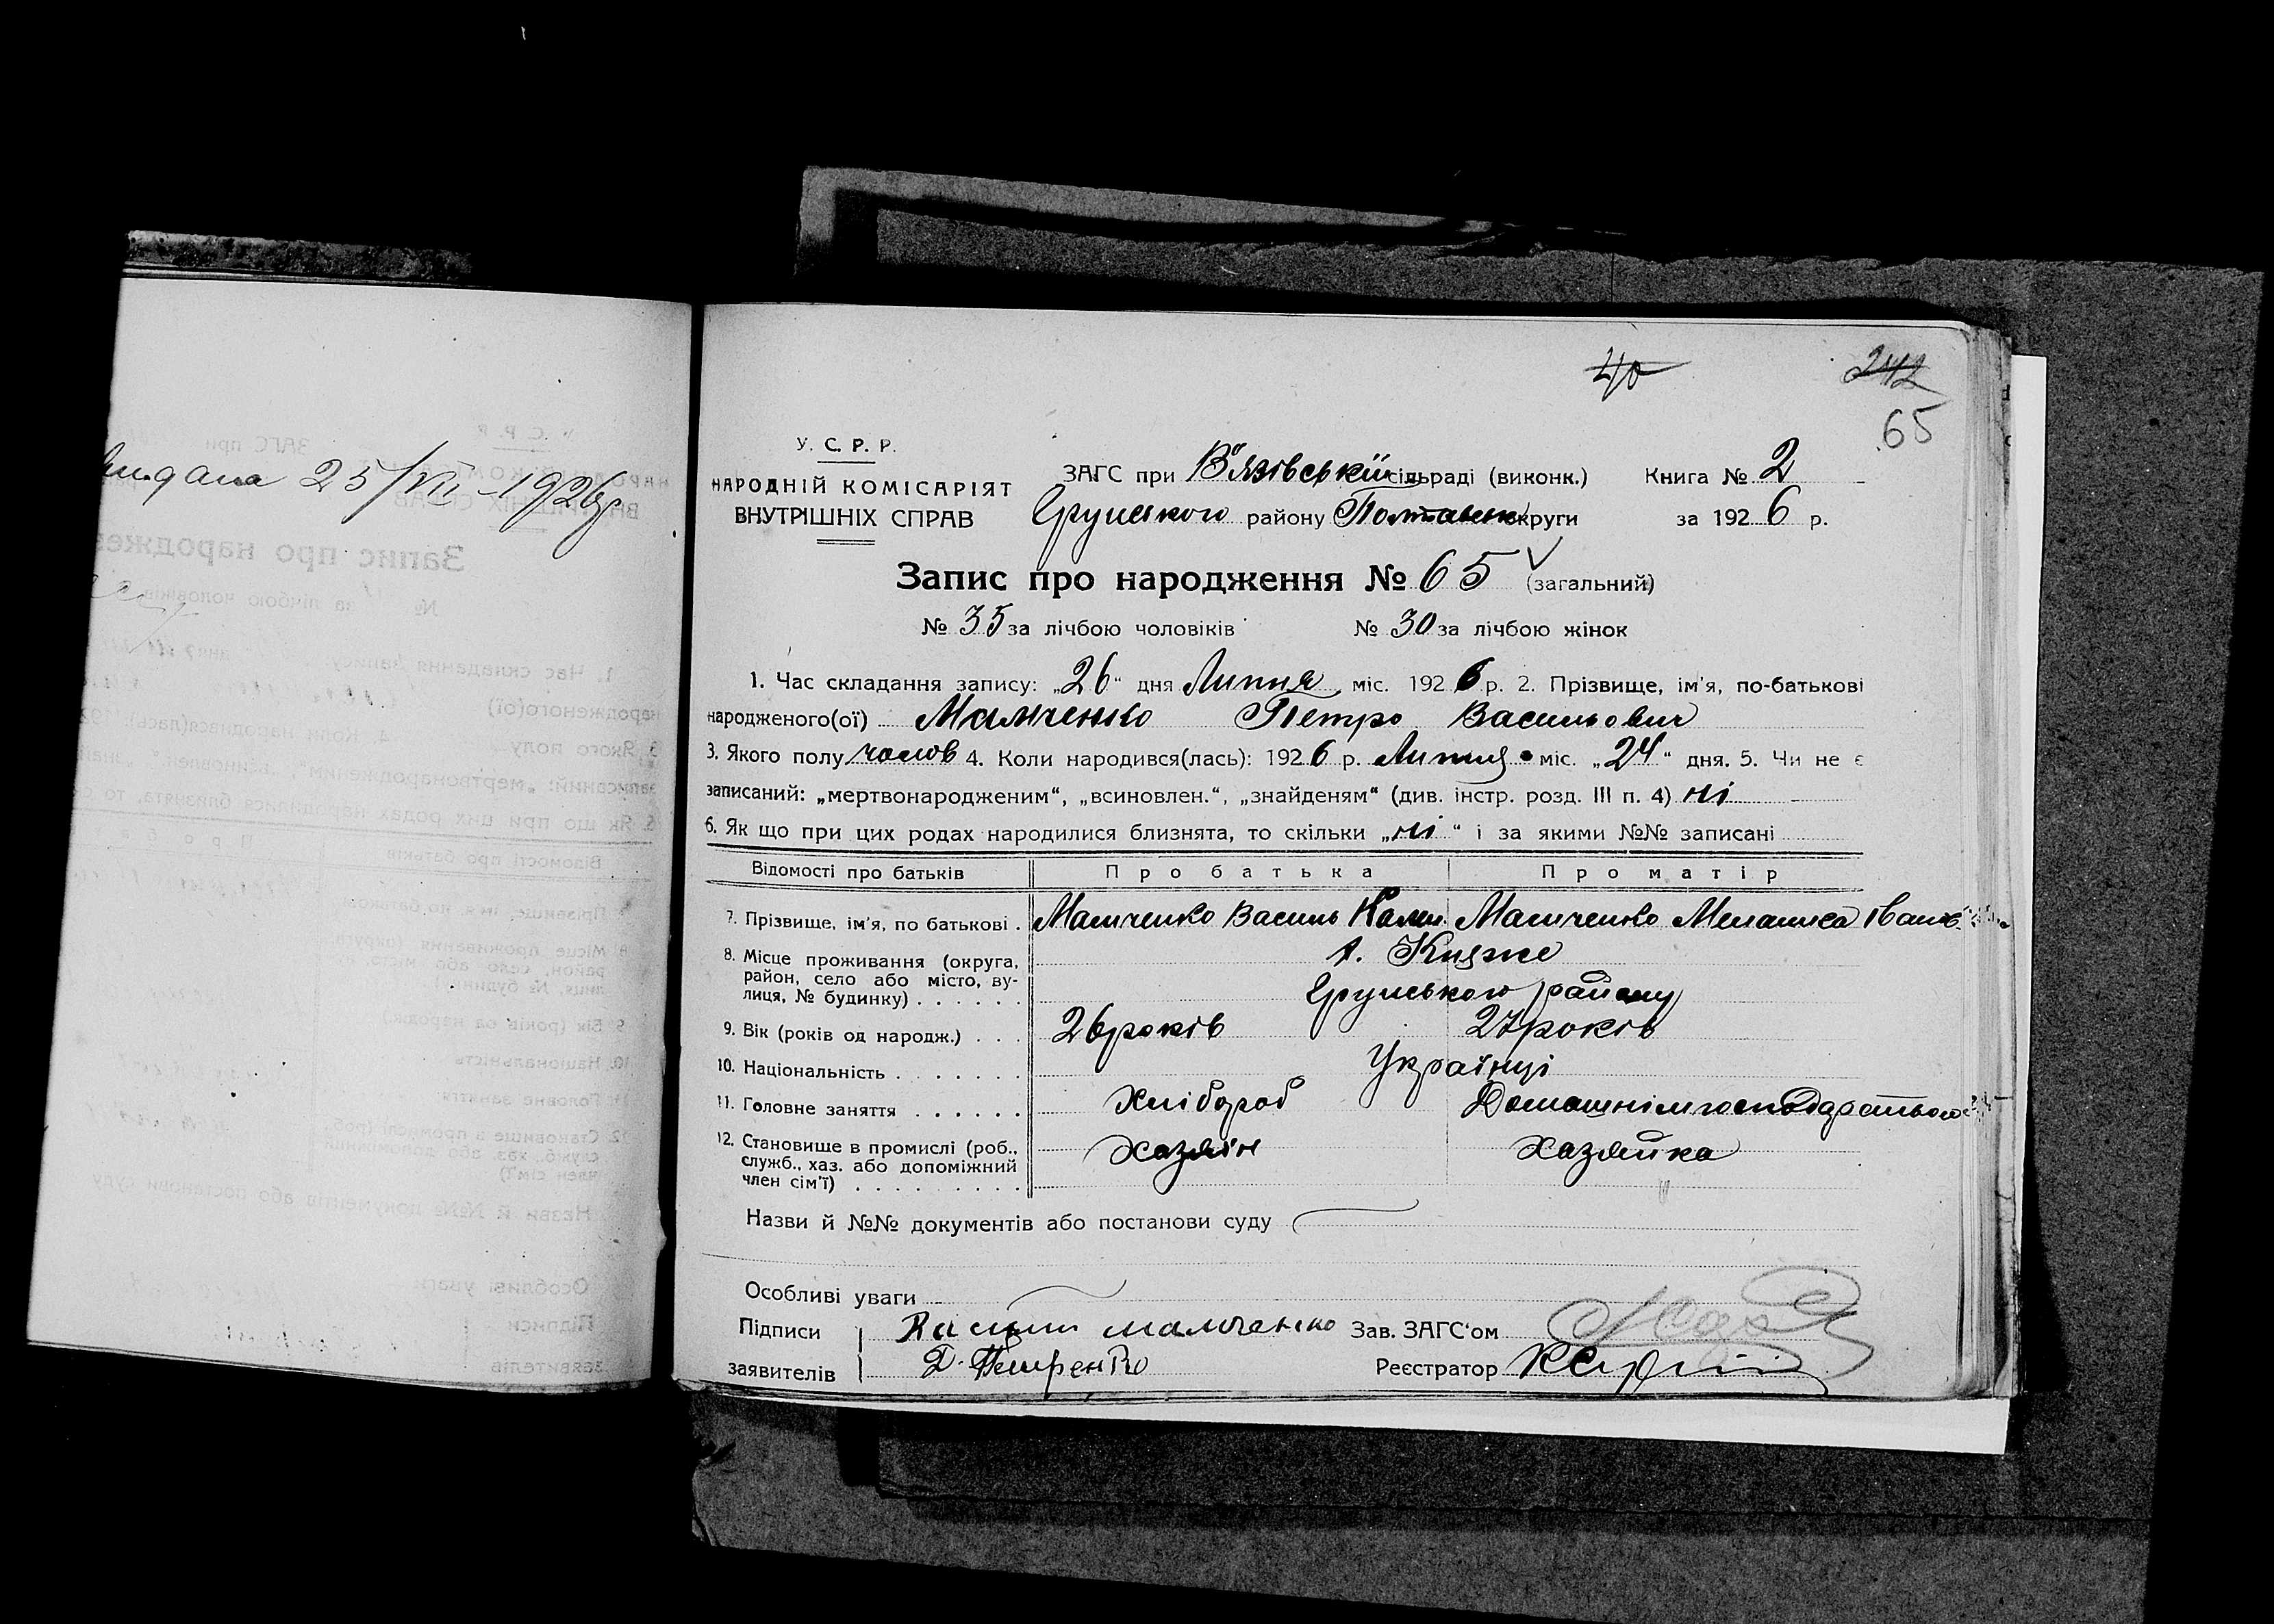 25/VII - 1926 р
40
242
65
У. С. Р. Р.
НАРОДНІЙ КОМІСАРІЯТ
ВНУТРІШНІХ СПРАВ
ЗАГС при В'язівській сільраді (виконк.) Книга № 2
Грунського району Полтавськ округи за 1926 р.
Запис про народження № 65 (загальний)
№ 35 за лічбою чоловіків № 30 за лічбою жінок
1. Час складання запису: „26“ дня Липня міс. 1926 р. 2. Прізвище, ім'я, по-батькові
народженого(ої) Мамченко Петро Васильович
3. Якого полу чолов 4. Коли народився(лась): 1926 р. Липня міс. „24“ дня. 5. Чи не є
записаний: „мертвонародженим“, „всиновлен.“, „знайденям“ (див. інстр. розд. III п. 4) ні
6. Як що при цих родах народилися близнята, то скільки „ні“ і за якими №№ записані
Відомості про батьків Про батька Про матір
7. Прізвище, ім'я, по батькові . Мамченко Василь Мамченко Меланка Іванів
8. Місце проживання (округа, х. Княже
район, село або місто, ву-
лиця, № будинку) . . . . . . Грунського району
9. Вік (років од народж.) . . . 26 років 27 років
10. Національність . . . . . . . Українці
11. Головне заняття . . . . . . Хлібороб Домашнім господарством
12. Становище в промислі (роб., Хазяїн Хазяйка
служб., хаз. або допоміжний
член сім'ї) . . . . . . . . .
Назви й №№ документів або постанови суду
Особливі уваги
Підписи Василь мамченко Зав. ЗАГС'ом
заявителів Петренко Реєстратор